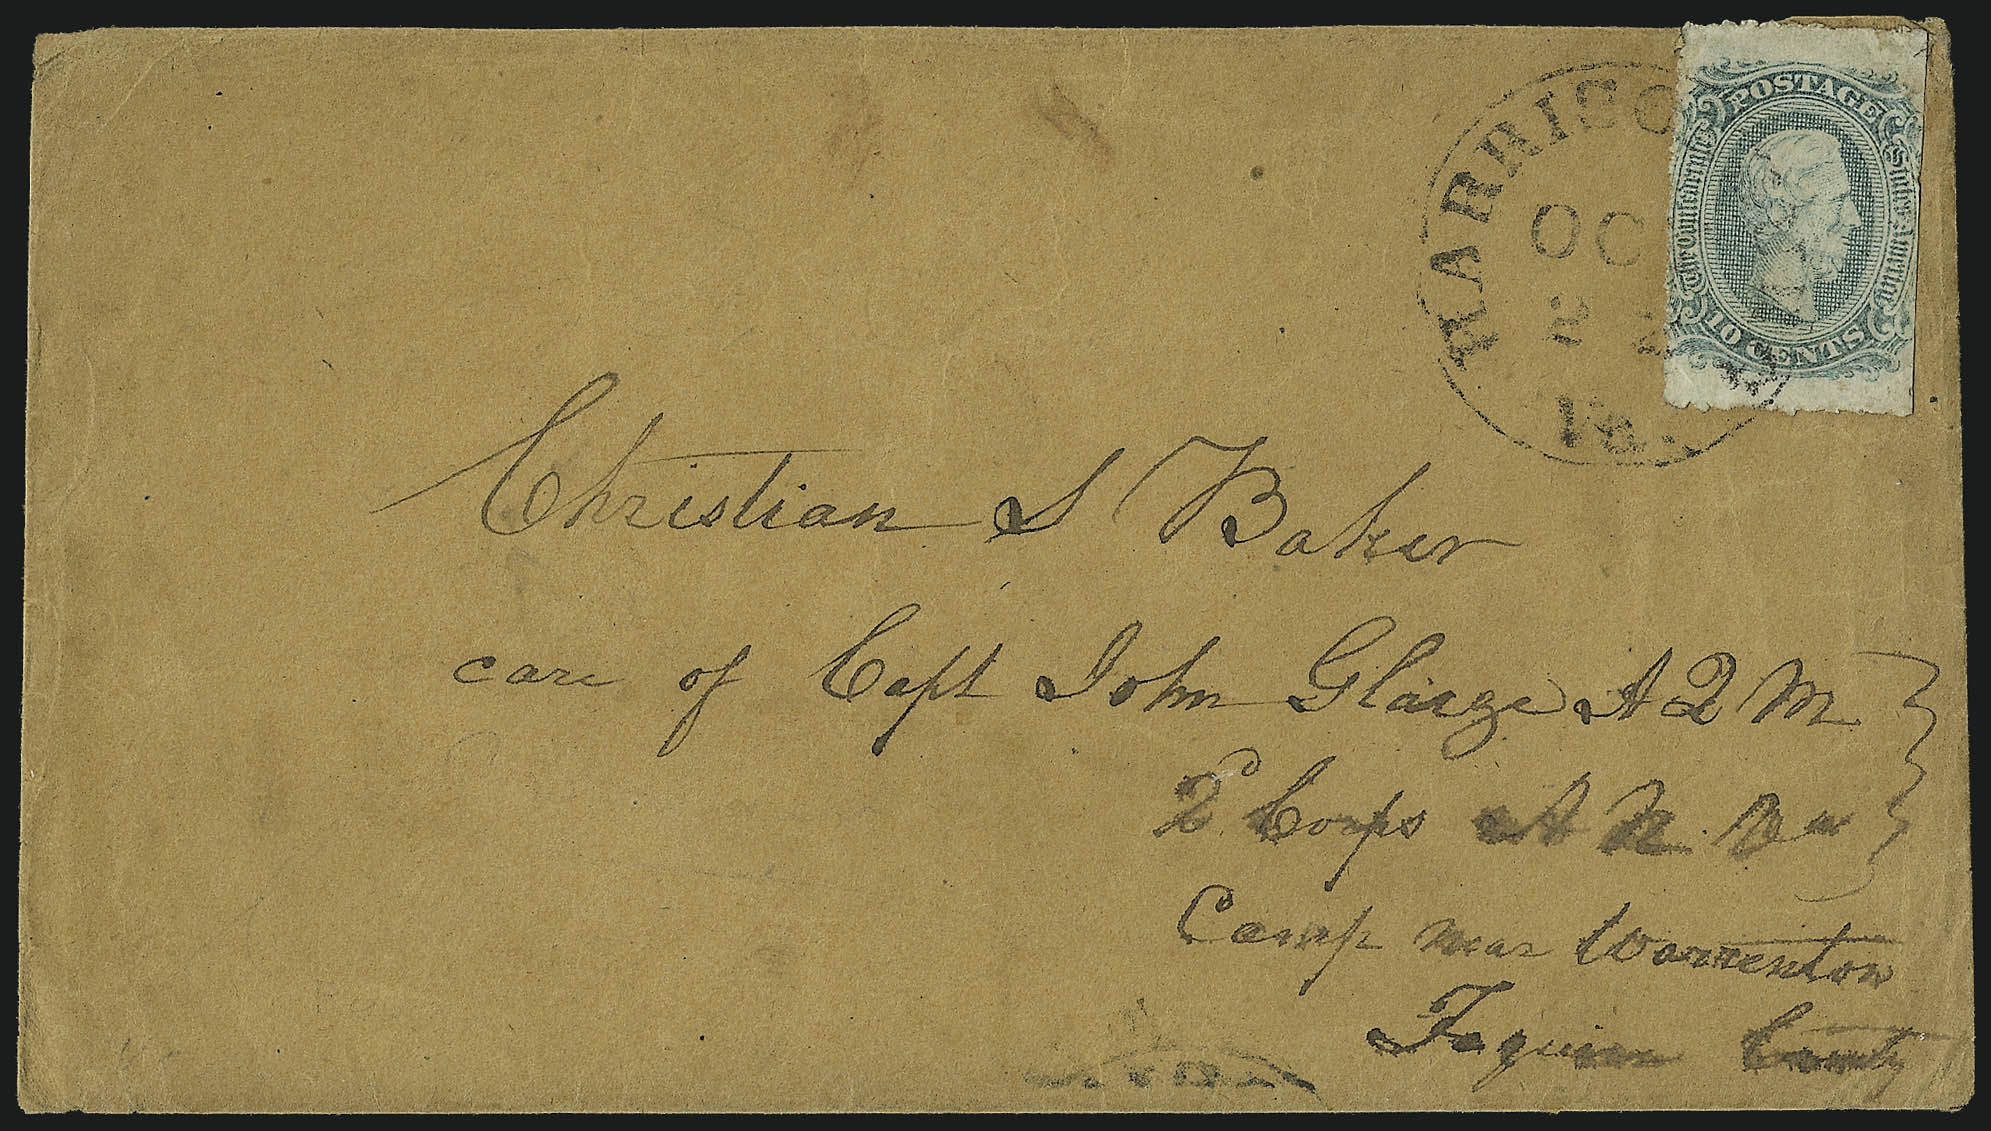 HARRISO
OC
2
Va.
POSTAGE
The Confederate States America
10 CENTS
Christian S Baker
care of Capt John Glaize A Q M
2d Corps A N Va
Camp near Warrenton
Faquier County